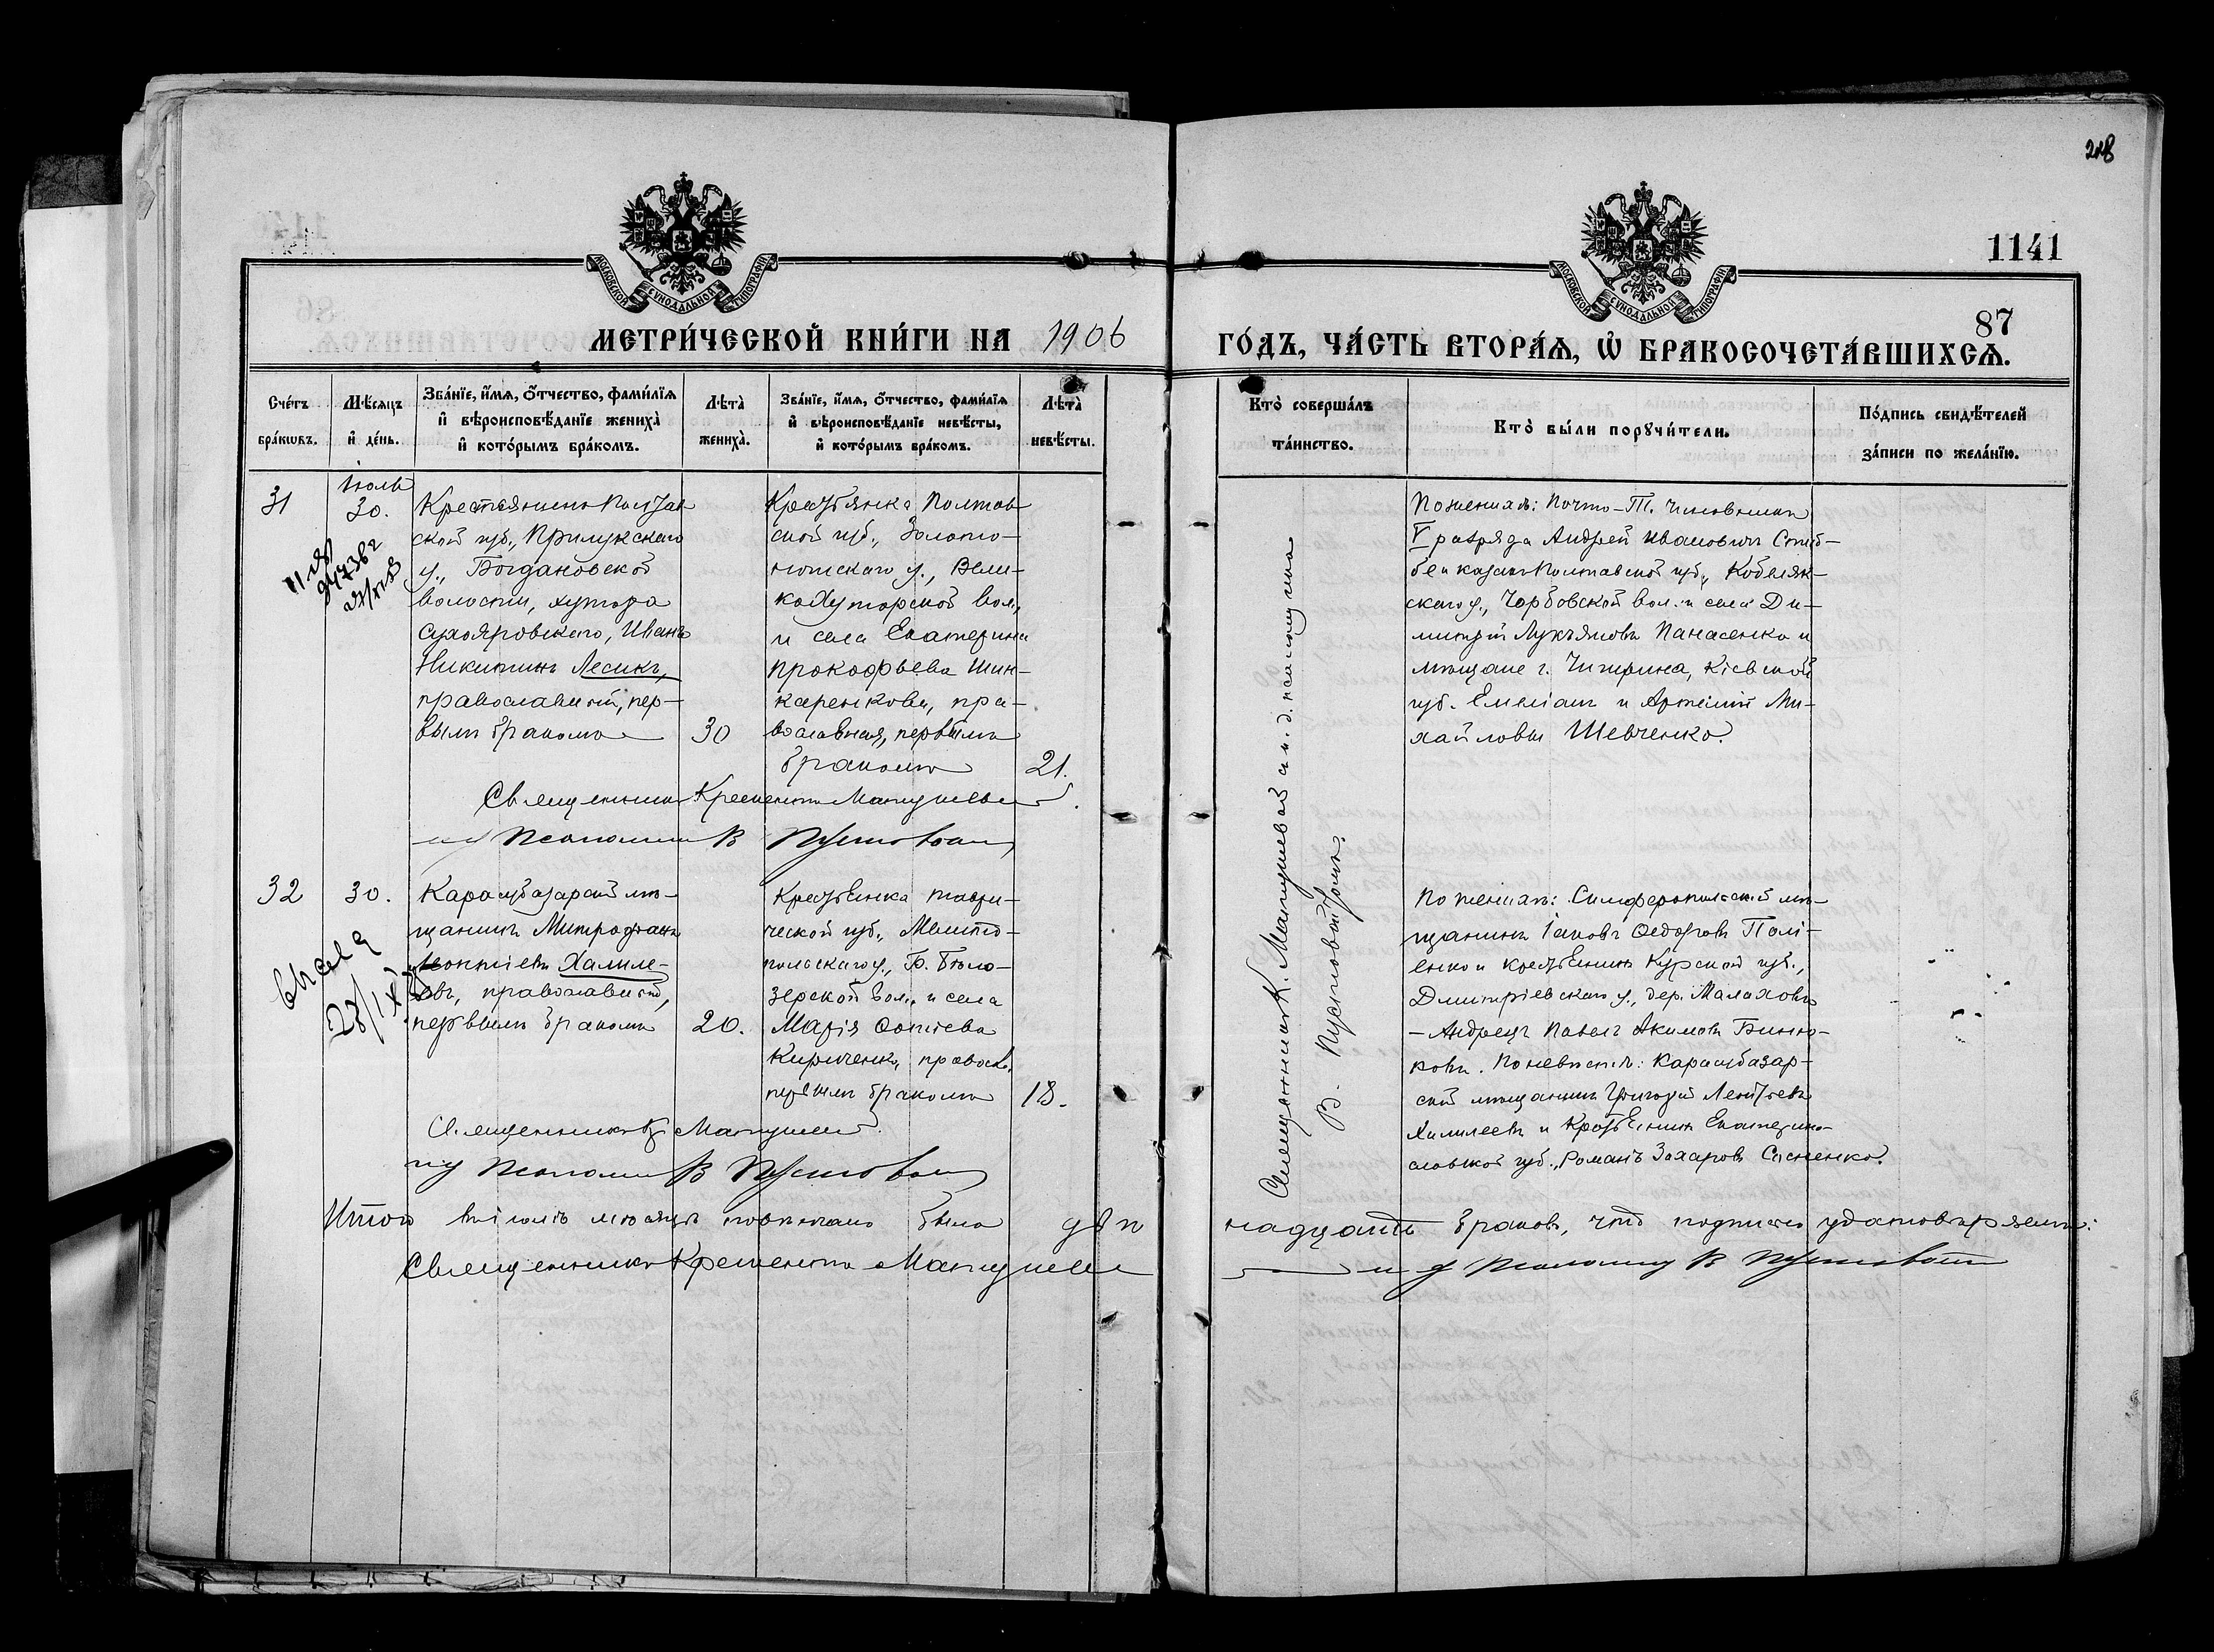 218
1141
87
МОСКОВСКОЙ СѴНОДАЛЬНОЙ ТИПОГРАФІИ
МОСКОВСКОЙ СѴНОДАЛЬНОЙ ТИПОГРАФІИ
МЕТРИ́ЧЕСКОЙ КНИ́ГИ НА 1906 ГО́ДЪ, ЧА́СТЬ ВТОРА́Я, Ѡ БРАКОСОЧЕТА́ВШИХСЯ.
Сче́тъ бра́кѡвъ.
Мѣ́сяцъ и҆ де́нь.
Зва́нїе, и҆́мя, ѻ҆́тчество, фами́лїя
и҆ вѣроисповѣ́данїе жениха̀
и҆ кото́рымъ бра́комъ.
Лѣта̀ жениха̀.
Зва́нїе, и҆́мя, ѻ҆́тчество, фами́лїя
и҆ вѣроисповѣ́данїе невѣ́сты,
и҆ кото́рымъ бра́комъ.
Лѣта̀ невѣ́сты.
Кто̀ соверша́лъ та́инство.
Кто̀ бы́ли порꙋчи́тели.
По́дпись свидѣ́телей за́писи по жела́нїю.
31
Іюль
30.
Крестьянинъ Полтав
ской губ., Прилукскаго
у., Богдановской
волости, хутора
Сухояровскаго, Иванъ
Никитинъ Лесикъ,
православный, пер-
вымъ бракомъ
30
Крестьянка Полтав
ской губ., Золото-
ношскаго у., Вели-
кохуторской вол.
и села Екатерина
Прокофьева Шин-
каренкова, пра-
вославная, первымъ
бракомъ
21.
Священникъ К. Матушевой и и. д. псаломщика
В. Пустовойтомъ.
По женихѣ: Почто-Т. чиновникъ
V разряда Андрей Ивановичъ
казакъ Полтавской губ., Кобеляк-
скаго у., вол. и села Ди-
митрій Лукьяновъ Панасенко и
мѣщане г. Чигирина, Кіевской
губ. Емеліанъ и Артемій Ми-
хайловы Шевченко.
Священникъ Матушевой
Псаломщ В Пустовойт
32
30.
Карасубазарскій мѣ-
щанинъ Митрофанъ
Халиле-
евъ, православный,
первымъ бракомъ
20.
Крестьянка Таври-
ческой губ., Мелито-
польскаго у., Б. Бѣло-
зерской вол. и села
Марія Фотіева
Кириченко, правосл.
первымъ бракомъ
18.
По женихѣ: Симферопольскій мѣ-
щанинъ Іаковъ Ѳедоровъ Полі-
енко и крестьянинъ Курской губ.,
Дмитріевскаго у., дер. Малахова
Павелъ Акимовъ Бинно-
ковъ. По невѣстѣ: Карасубазар-
скій мѣщанинъ Григорій Леонтьевъ
Халилеевъ и крестьянинъ Екатерино-
славской губ., Романъ Захаровъ
Священникъ К. Матушевой
и д Псаломщ В Пустовойт
Итого въ іюлѣ мѣсяцѣ повѣнчано было двѣ надцать браковъ, что подписью удостовѣряемъ:
Священникъ Матушевой и д Псаломщ В Пустовойт